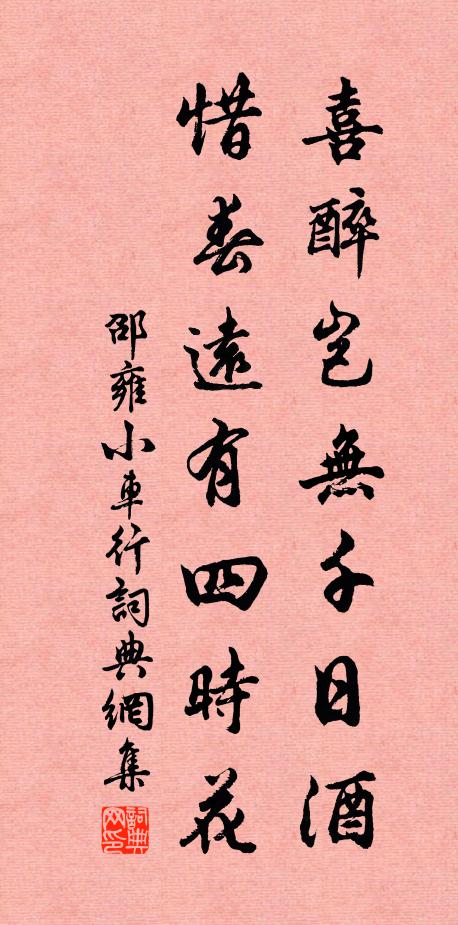 喜醉豈無千日酒
惜春遠有四時花
邵雍小車行詞典網集
詞典网印